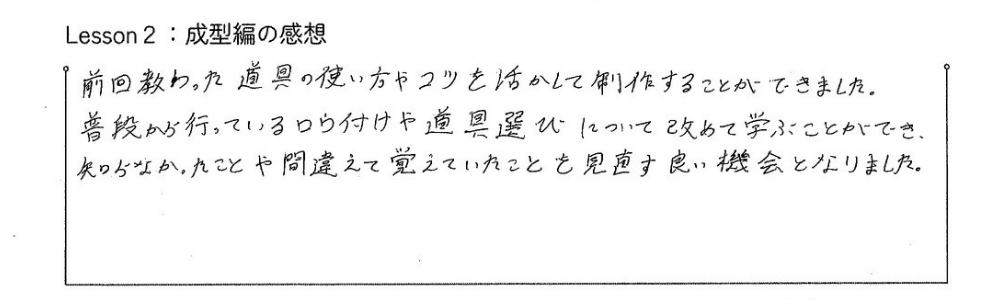 Lesson 2：成型編の感想
前回教わった道具の使い方やコツを活かして制作することができました。
普段から行っているロウ付けや道具選びについて改めて学ぶことができ、
知らなかったことや間違えて覚えていたことを見直す良い機会となりました。